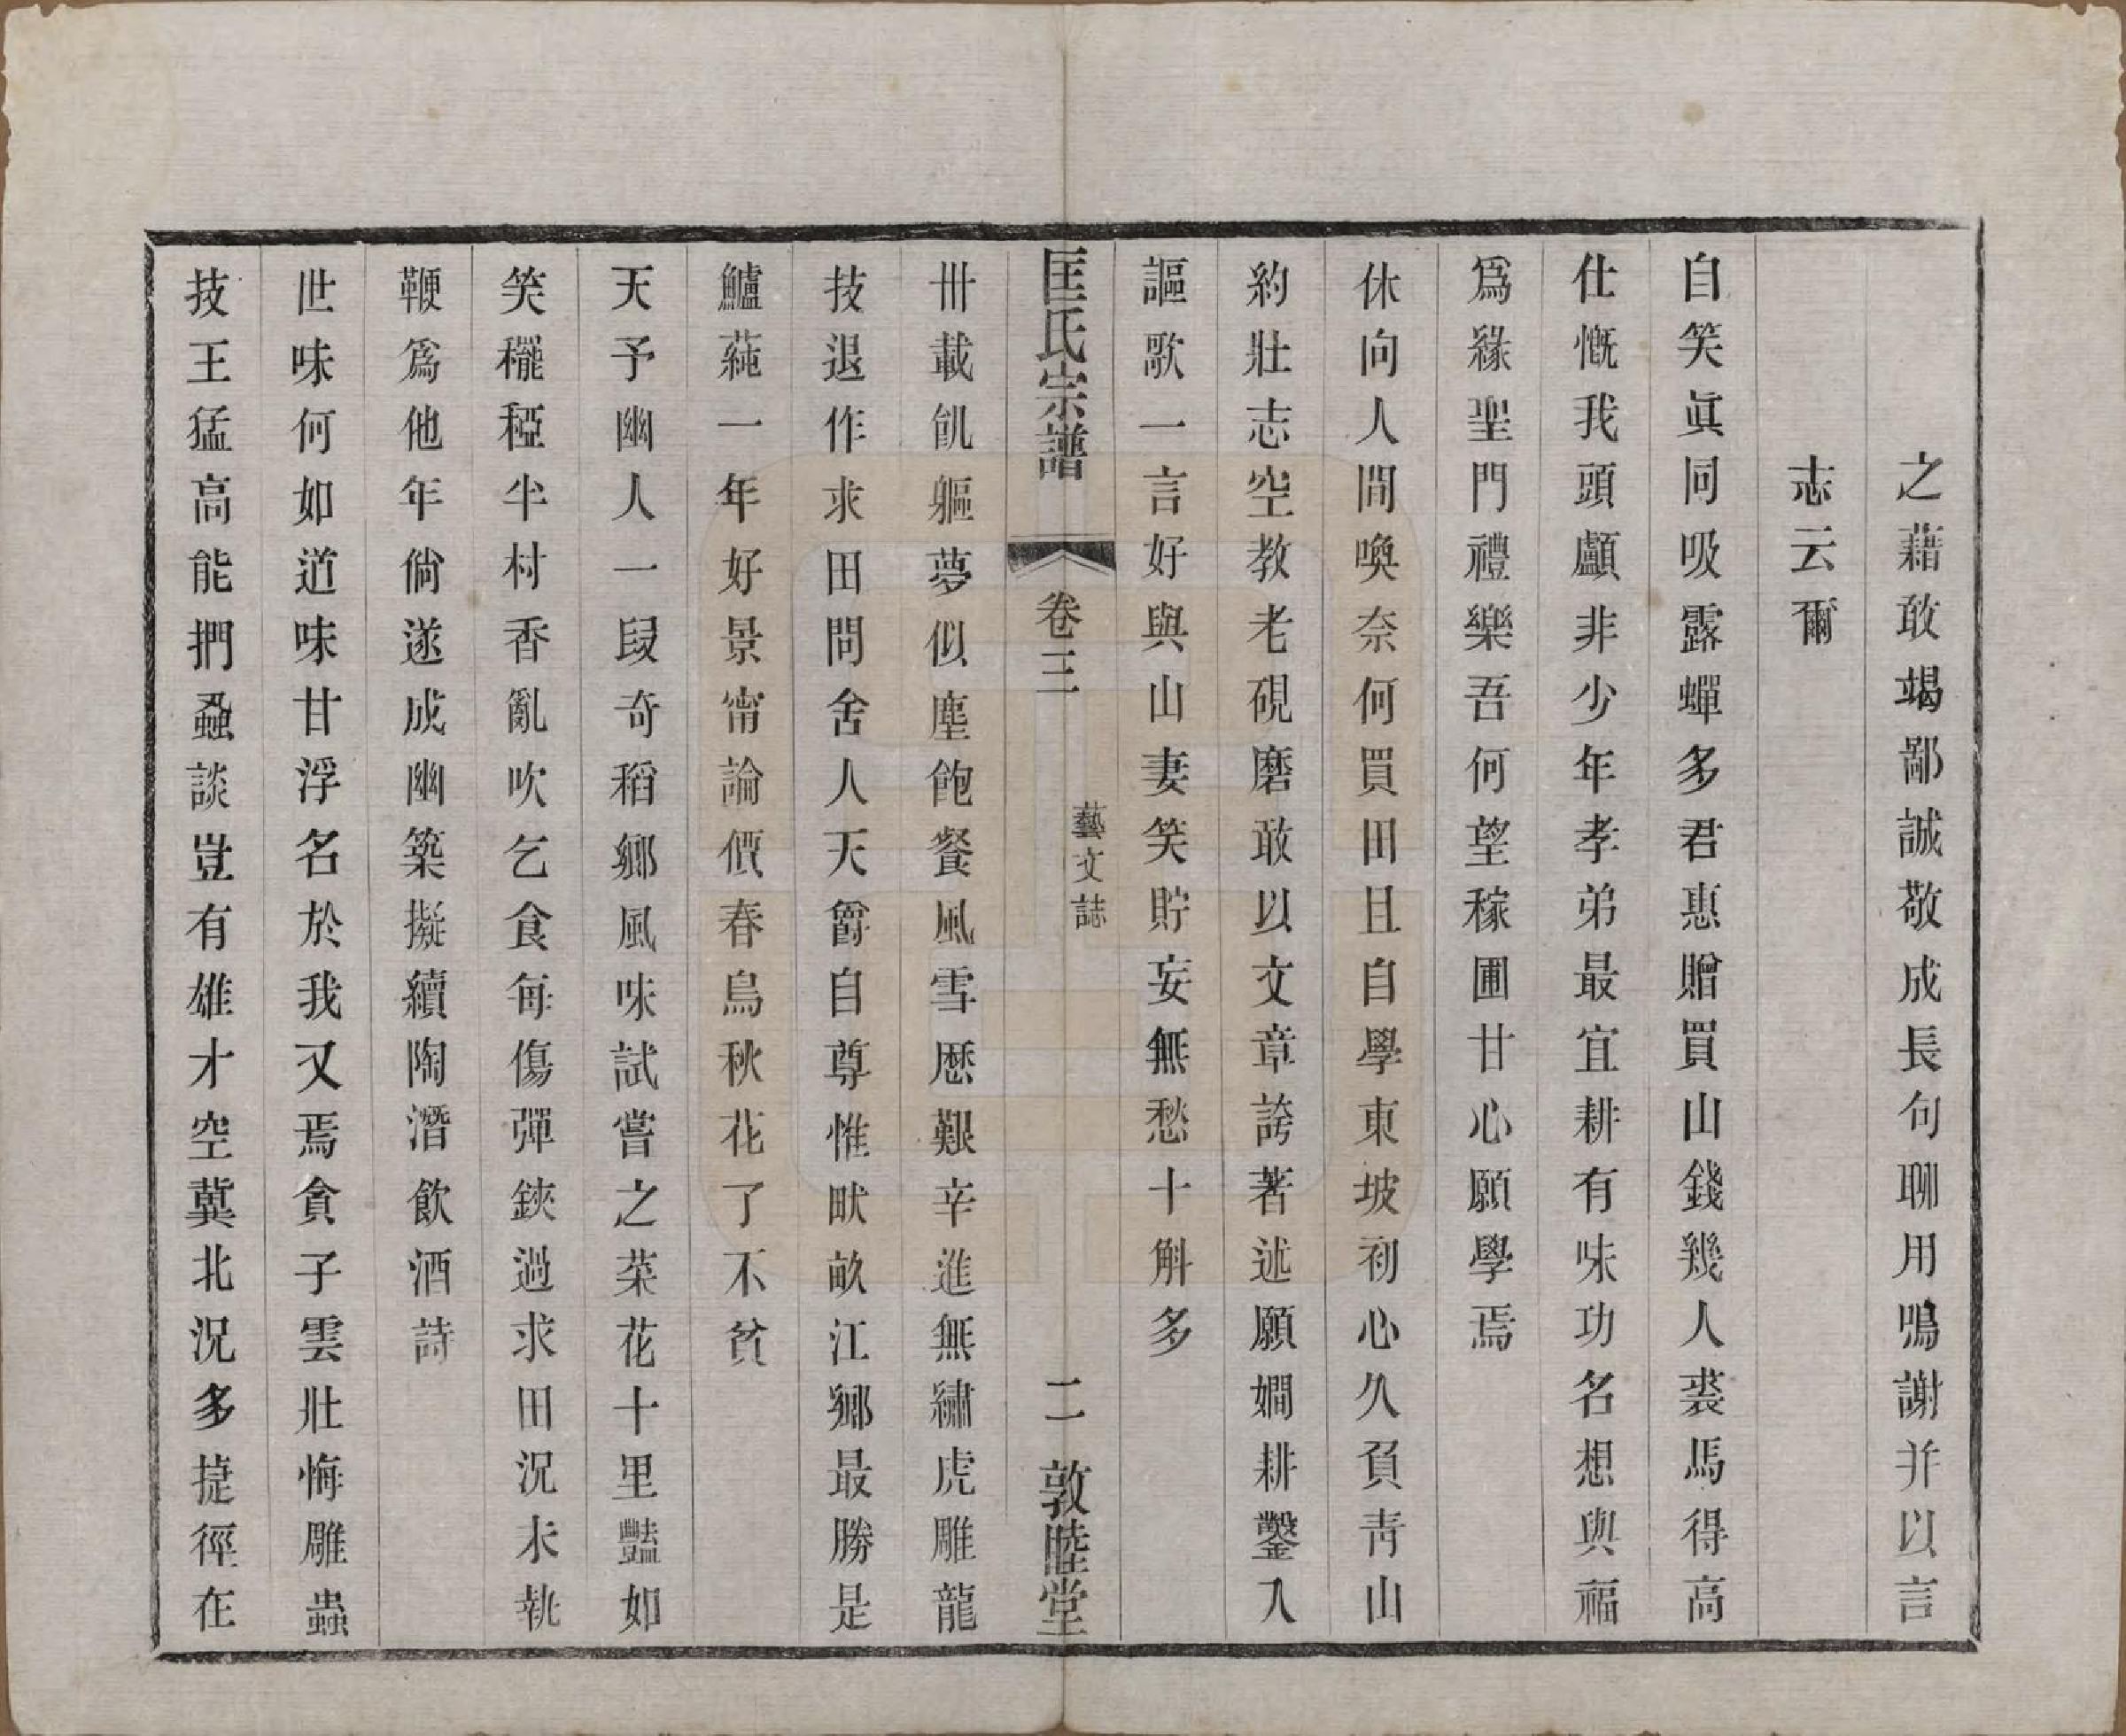 之藉敢竭鄙誠敬成長句聊用鳴謝并以言
志云爾
自笑眞同吸露蟬多君惠贈買山錢幾人裘馬得高
仕慨我頭顱非少年孝弟最宜耕有味功名想與福
爲緣聖門禮樂吾何望稼圃甘心願學焉
休向人間喚奈何買田且自學東坡初心久負靑山
約壯志空敎老硯磨敢以文章誇著述願嫺耕鑿入
謳歌一言好與山妻笑貯妄無愁十斛多
匡氏宗譜
卷三
藝文誌
二
敦睦堂
卅載飢軀夢似塵飽餐風雪歷艱辛進無繡虎雕龍
技退作求田問舍人天爵自尊惟畎畝江鄕最勝是
鱸蒓一年好景甯論價春鳥秋花了不貧
天予幽人一段奇稻鄕風味試嘗之菜花十里豔如
笑䆉稏半村香亂吹乞食每傷彈鋏過求田況未執
鞭爲他年倘遂成幽築擬續陶潛飮酒詩
世味何如道味甘浮名於我又焉貪子雲壯悔雕蟲
技王猛高能捫蝨談豈有雄才空冀北況多捷徑在